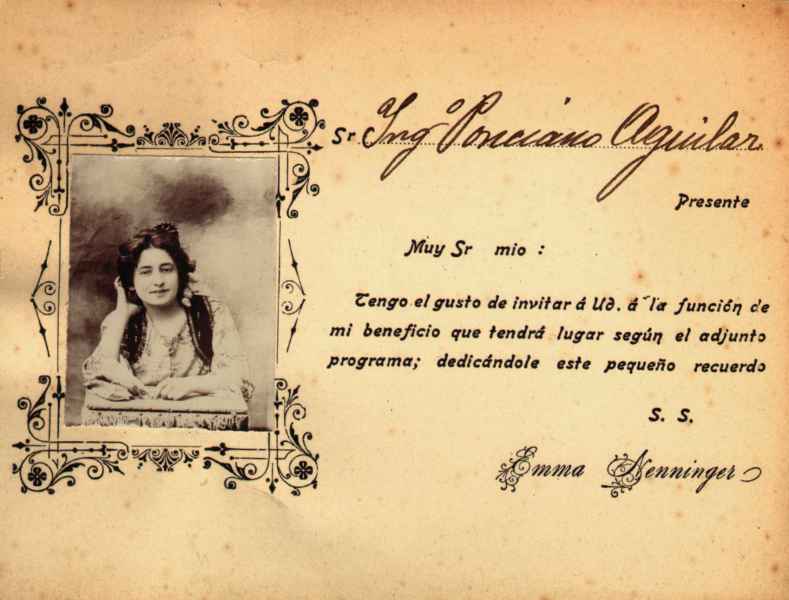 Sr Ingº Ponciano Aguilar.
Presente
Muy Sr mio :
Tengo el gusto de invitar á Ud. á la función de
mi beneficio que tendrá lugar según el adjunto
programa; dedicándole este pequeño recuerdo
S. S.
Emma Nenninger